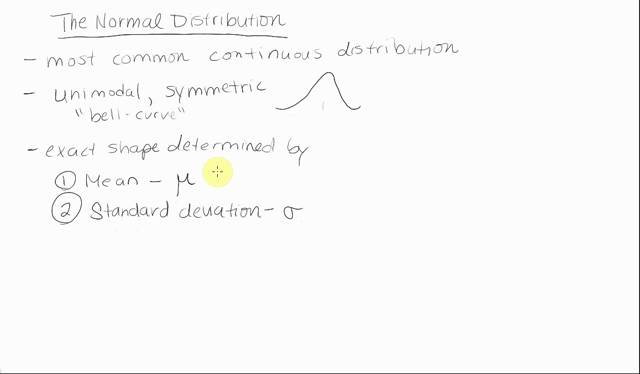 The Normal Distribution
- most common continuous distribution
- unimodal, symmetric
"bell-curve"
- exact shape determined by
① Mean - μ
② Standard deviation - σ